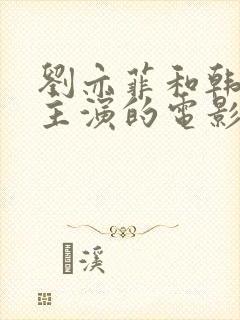 劉亦菲和韩
主演的電影
溪